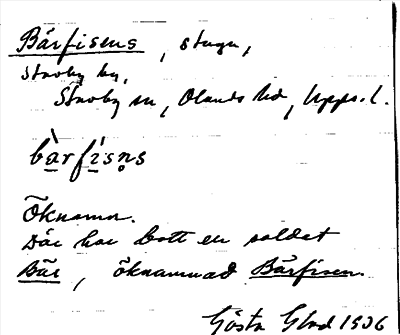 Bärfisens, stuga,
Stavby by,
Stavby sn, Olands hd, Upps. l.
bàrfísn̥s
Öknamn.
Där har bott en soldat
Bär, öknamnad Bärfisen.
Gösta Glad 1936